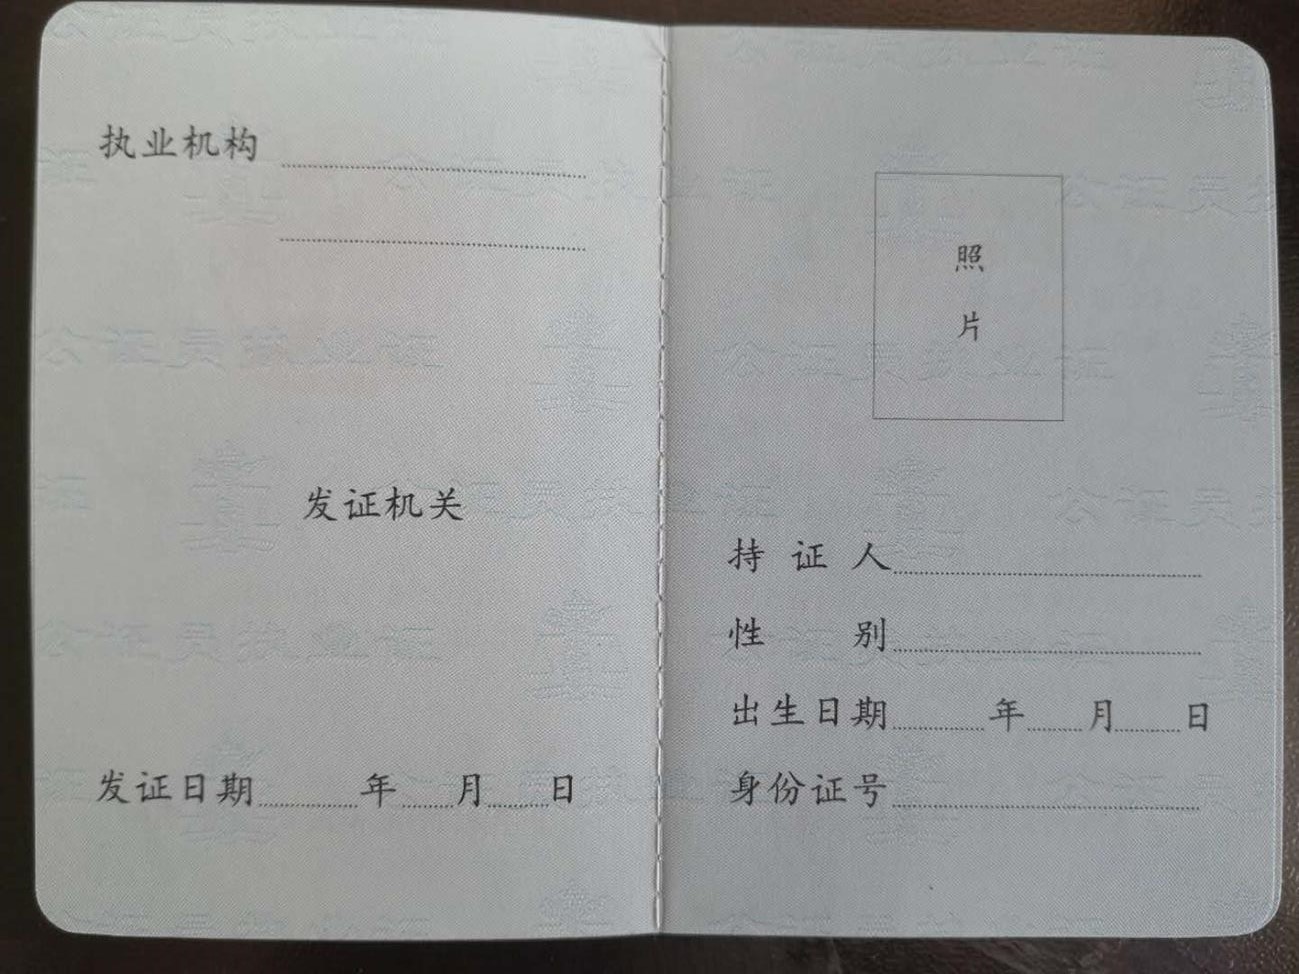 执业机构
发证机关
发证日期 年 月 日
照
片
持证人
性别
出生日期 年 月 日
身份证号
公证员执业证